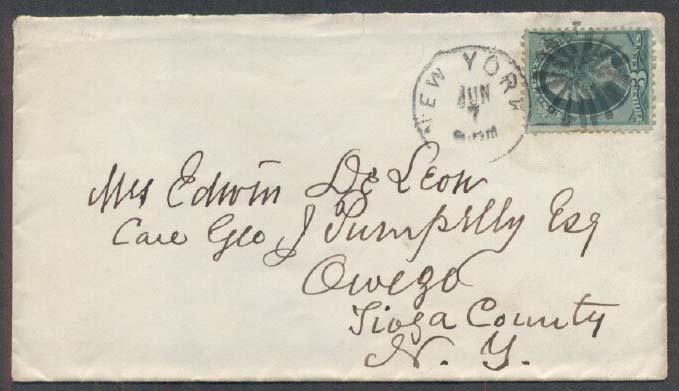 NEW YORK
JUN
7
Mrs Edwin De Leon
Care Geo J Pumpelly Esq
Owego
Tioga County
N. Y.